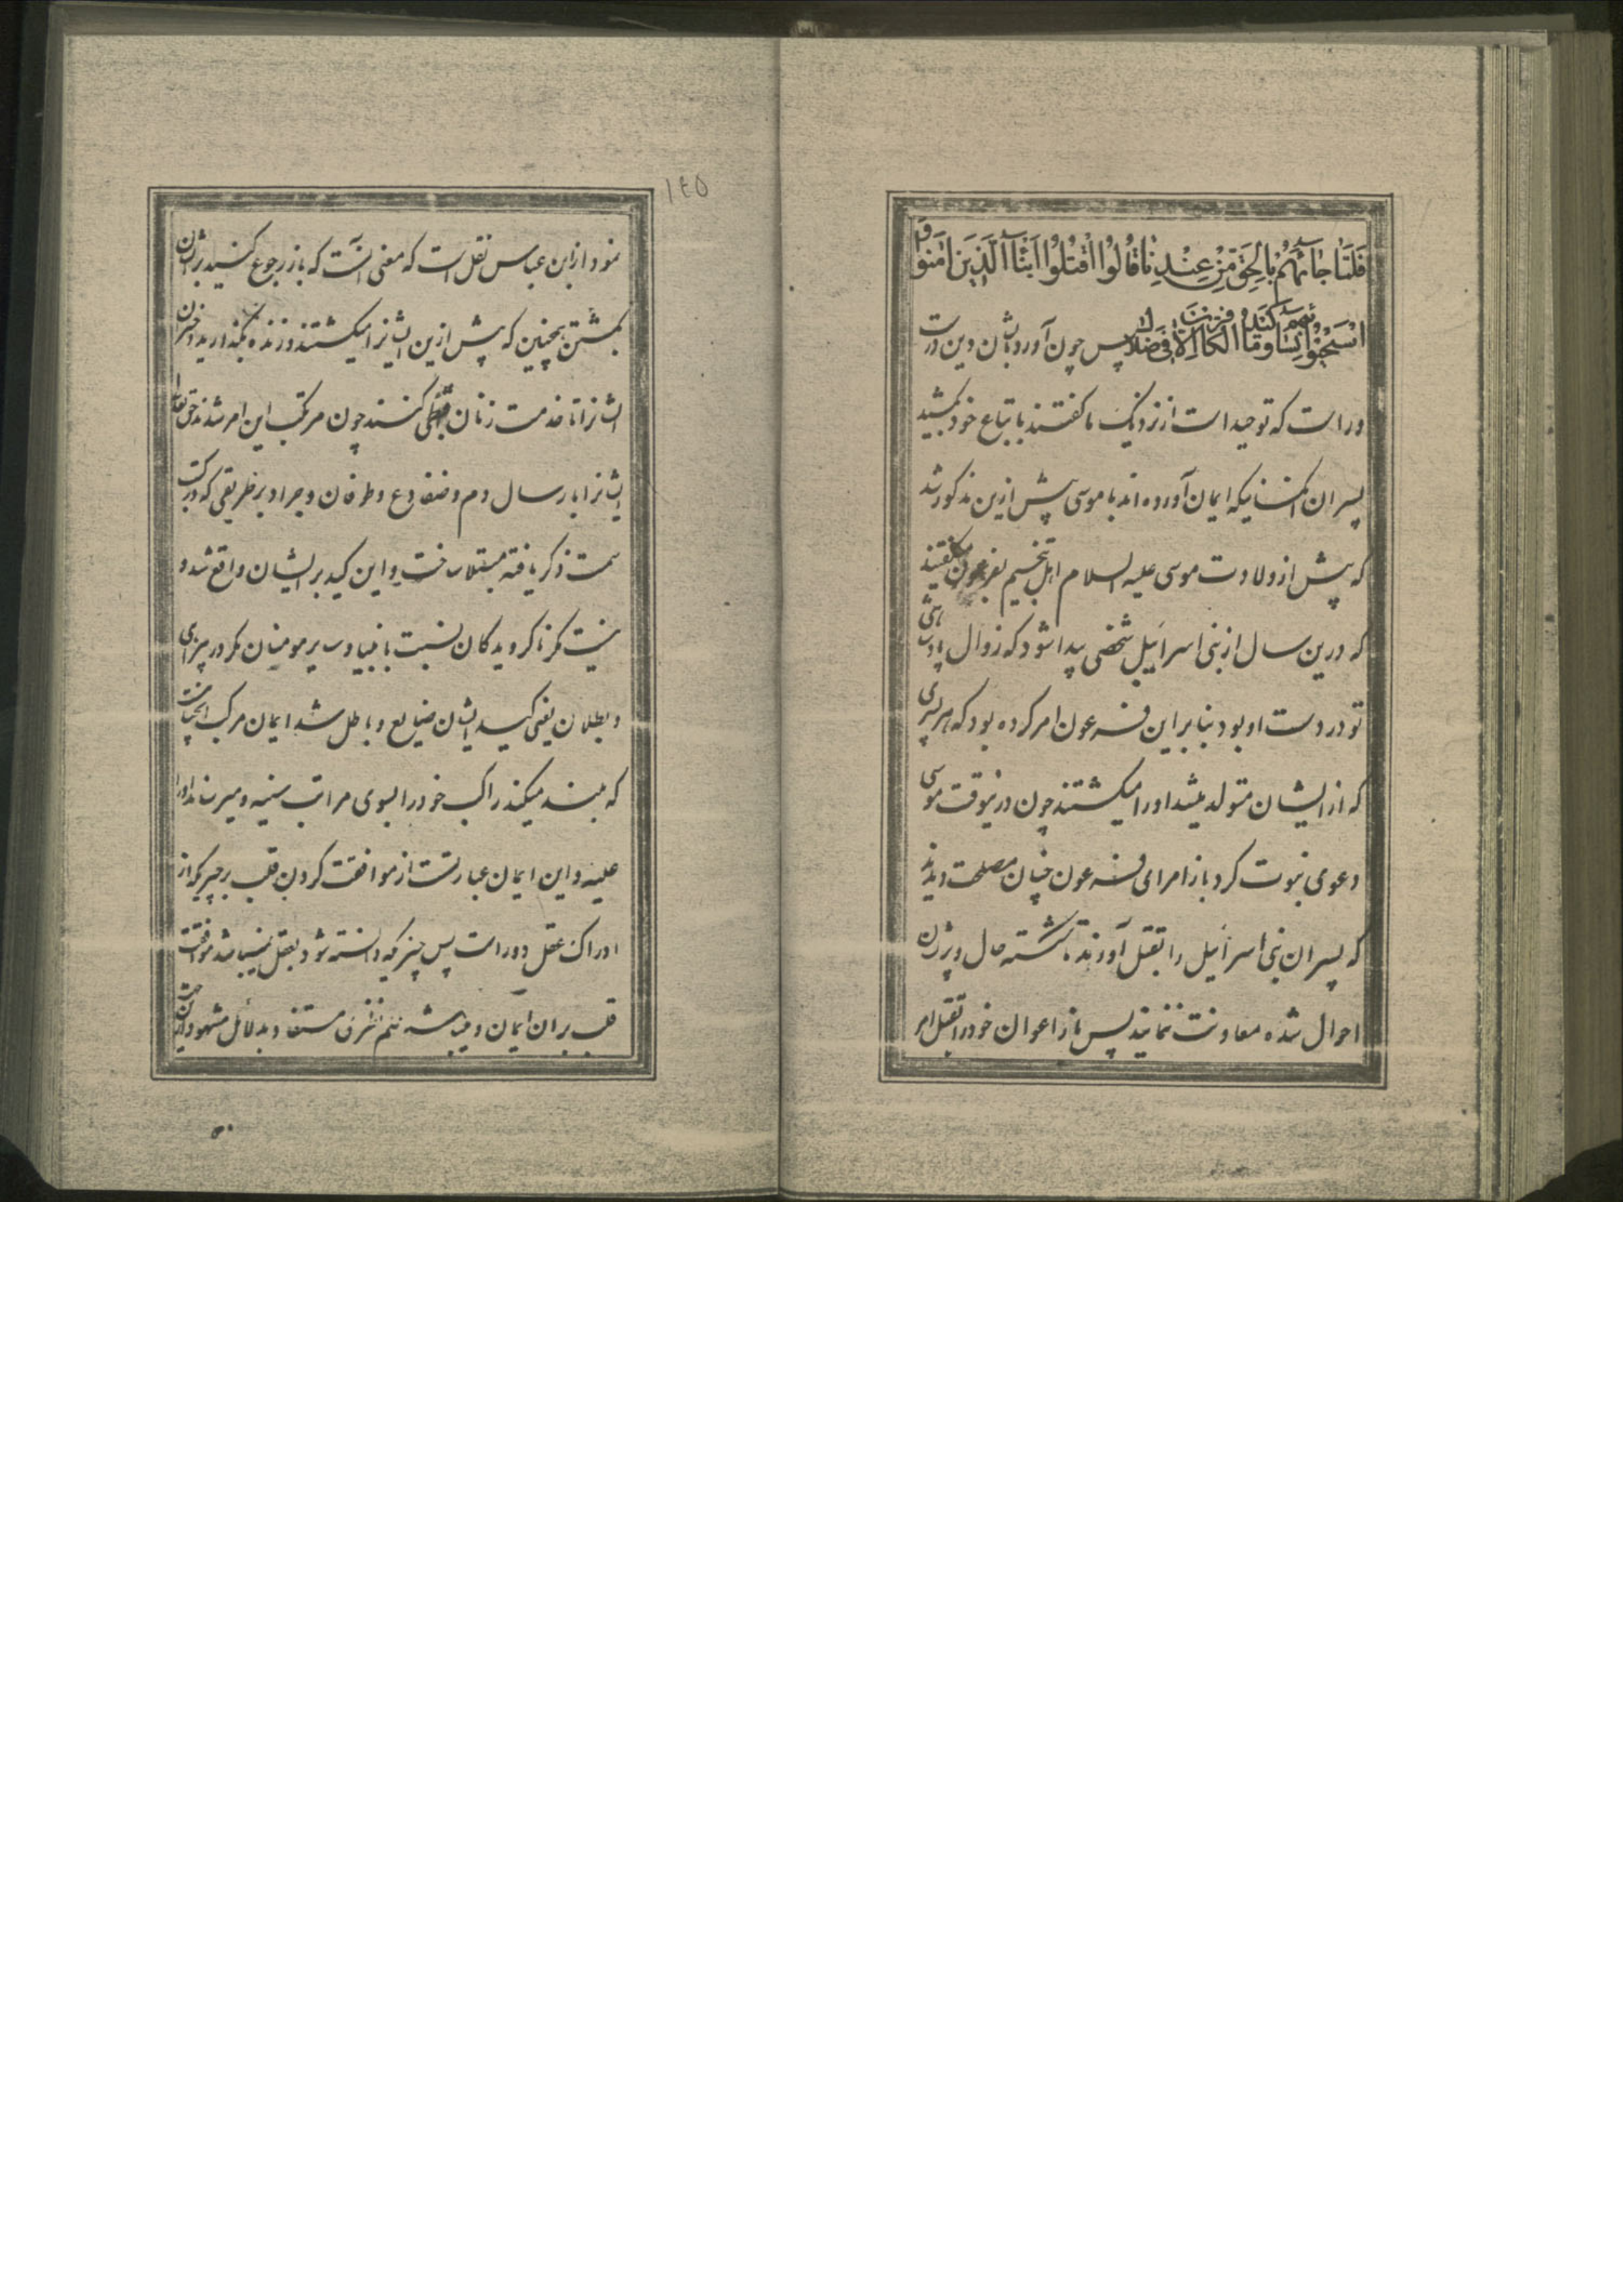 فَلَمَّا جَائَهُمْ بِالْحَقِّ مِنْ عِنْدِنَا قَالُوا اقْتُلُوا اَبْنَآءَ الَّذِينَ اٰمَنُوا
اسْتَحْيُوا نِسَاءَهُمْ وَمَا كَيْدُ الْكَافِرِينَ اِلَّا فِى ضَلَالٍ پس چون آورد بایشان دین درست
و راست که توحید است از نزدیک ما گفتند باتباع خود بکشید
پسران آنکسانیکه ایمان آورده اند با موسی پیش ازین مذکور شد
که پیش از ولادت موسی علیه السلام اهل تنجیم بفرعون گفتند
که درین سال از بنی اسرائیل شخصی پیدا شود که زوال پادشاهی
تو در دست او بود بنابر این فرعون امر کرده بود که هر پسری
که از ایشان متولد میشد او را میکشتند چون درینوقت موسی
دعوی نبوت کرد باز امرای فرعون چنان مصلحت دیدند
که پسران بنی اسرائیل را بقتل آورند تا شکسته حال و پژمان
احوال شده معاونت ننمایند پس باز اعوان خود را بقتل امر
۱۴۵
نمود از ابن عباس نقل است که معنی آنست که باز رجوع کنید بر ایشان
بکشتن همچنین که پیش ازین ایشانرا میکشتند و زنده بگذارید دختران
ایشانرا تا خدمت زنان قبطی کنند چون مرتکب این امر شدند حق تعالی
ایشانرا بارسال دم و ضفادع و طوفان و جراد بر طریقی که در
سمت ذکر یافته مبتلا ساخت و این کید بر ایشان واقع شد و
نیست مکر ناکرویدکان نسبت بانبیا و سایر مومنان مکر در
و بطلان یعنی کید ایشان ضایع و باطل شد ایمان مرکب
که میکند راکب خود را بسوی مراتب سنیه و میرساند او را
علیه و این ایمان عبارتست از موافقت کردن قلب بر چیزیکه از
ادراک عقل دور است پس چیزیکه دانسته شود بعقل نمیباشد موافقت
قلب بران ایمان و میباشد مستفاد بدلائل مشهود